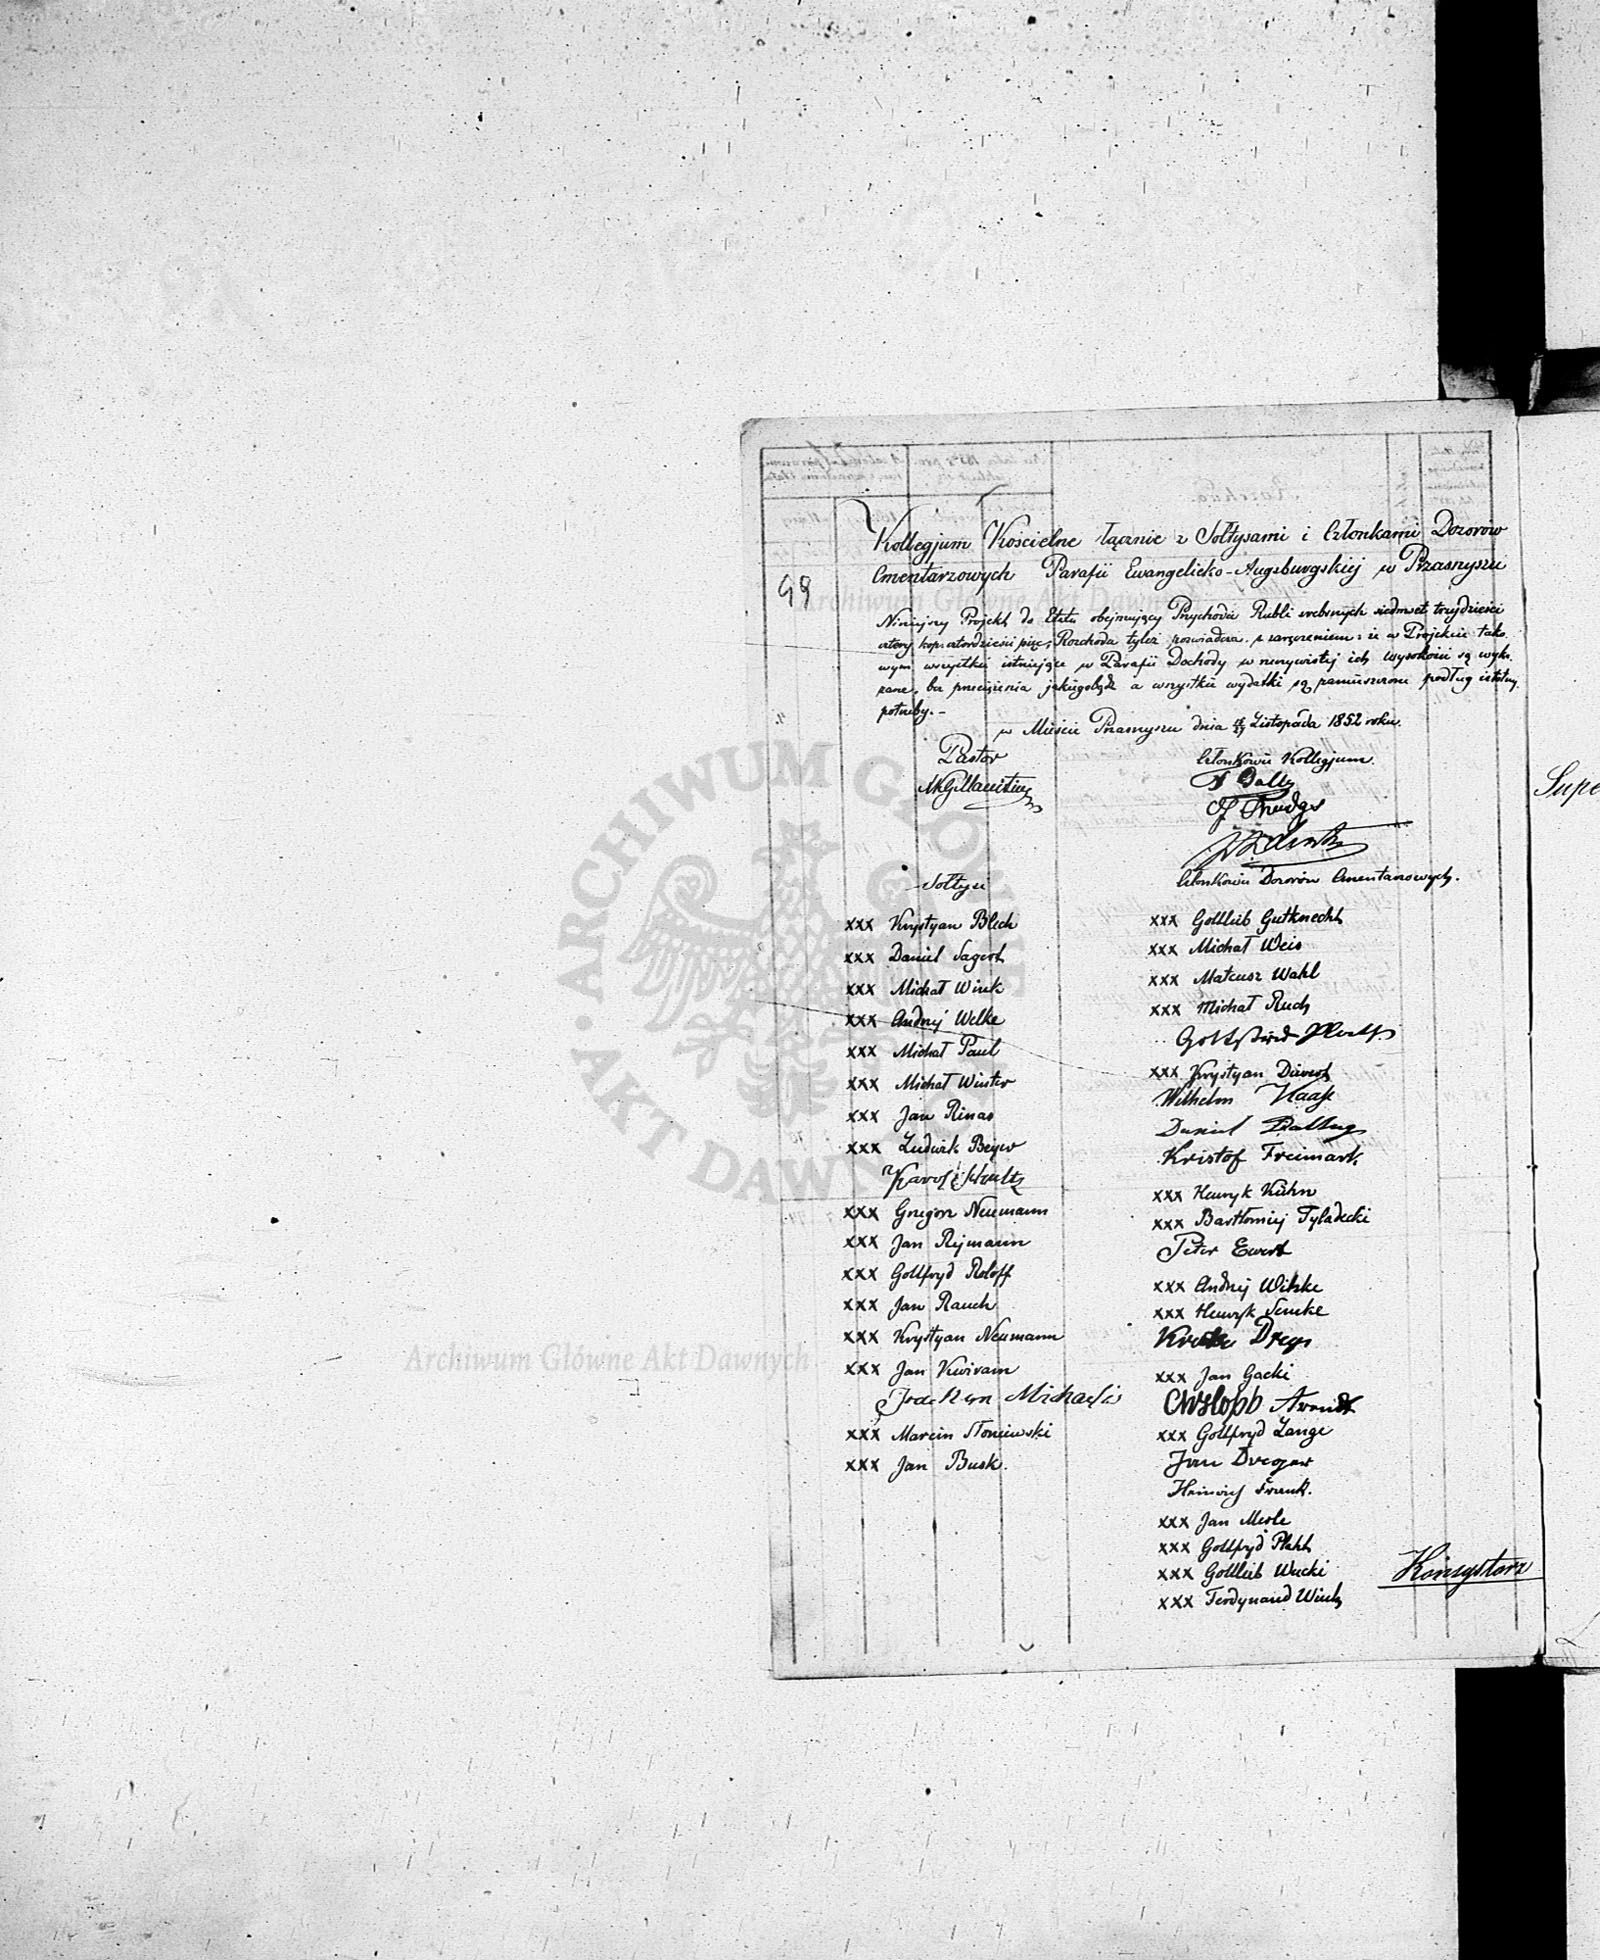 99
Kollegjum Kościelne łącznie z Sołtysami i Członkami Dozorów
Cmentarzowych Parafii Ewangelicko-Augsburgskiej w Przasnyszu
Niniejszy Projekt do Etatu obejmujący Przychodu Rubli srebrnych siedmset trzydzieści
cztery kop: czterdzieści pięć, Rozchodu tyleż poswiadcza, z zaręczeniem: iż w Projekcie tako
wym wszystkie istniejące w Parafii Dochody w rzeczywistej ich wysokości są wyka
zane, bez jakiegobądź a wszystkie wydatki są zamieszczone podług istotnej
potrzeby.-
w Mieście Przasnyszu dnia Listopada 1852 roku.
Pastor
Członkowie Kollegjum.
Sołtysi
Członkowie Dozorów Cmentarzowych.
xxx Krystyan Blech
xxx Daniel Sagert
xxx Michał Wink
xxx Andrzej Welke
xxx Michał Paul
xxx Michał Winter
xxx Jan Rinas
xxx Ludwik Beyer
Karol Schultz
xxx Grzegorz Neumann
xxx Jan Rejmann
xxx Gottfryd Roloff
xxx Jan Rauch
xxx Krystyan Neumann
xxx Jan Kwiram
Joachem Michaelis
xxx Marcin Słoniewski
xxx Jan Busk.
xxx Gottlieb Gutknecht
xxx Michał Weis
xxx Mateusz Wahl
xxx Michał Ruch
Gottfried
xxx Krystyan
Wilhelm Haase
Daniel
Kristof Freimark
xxx Henryk Kühn
xxx Bartłomiej Tyladecki
Peter Ewert
xxx Andrzej Witzke
xxx Henryk Semke
xxx Jan Gacki
Arendt
xxx Gottfryd Lange
Jan Dreger
Heinrich Frank.
xxx Jan Merle
xxx Gottfryd Plaht
xxx Gottlieb Wucki
xxx Ferdynand
Konsystorz
Supe
ARCHIWUM GŁÓWNE AKT DAWNYCH
Archiwum Główne Akt Dawnych
Archiwum Główne Akt Dawnych